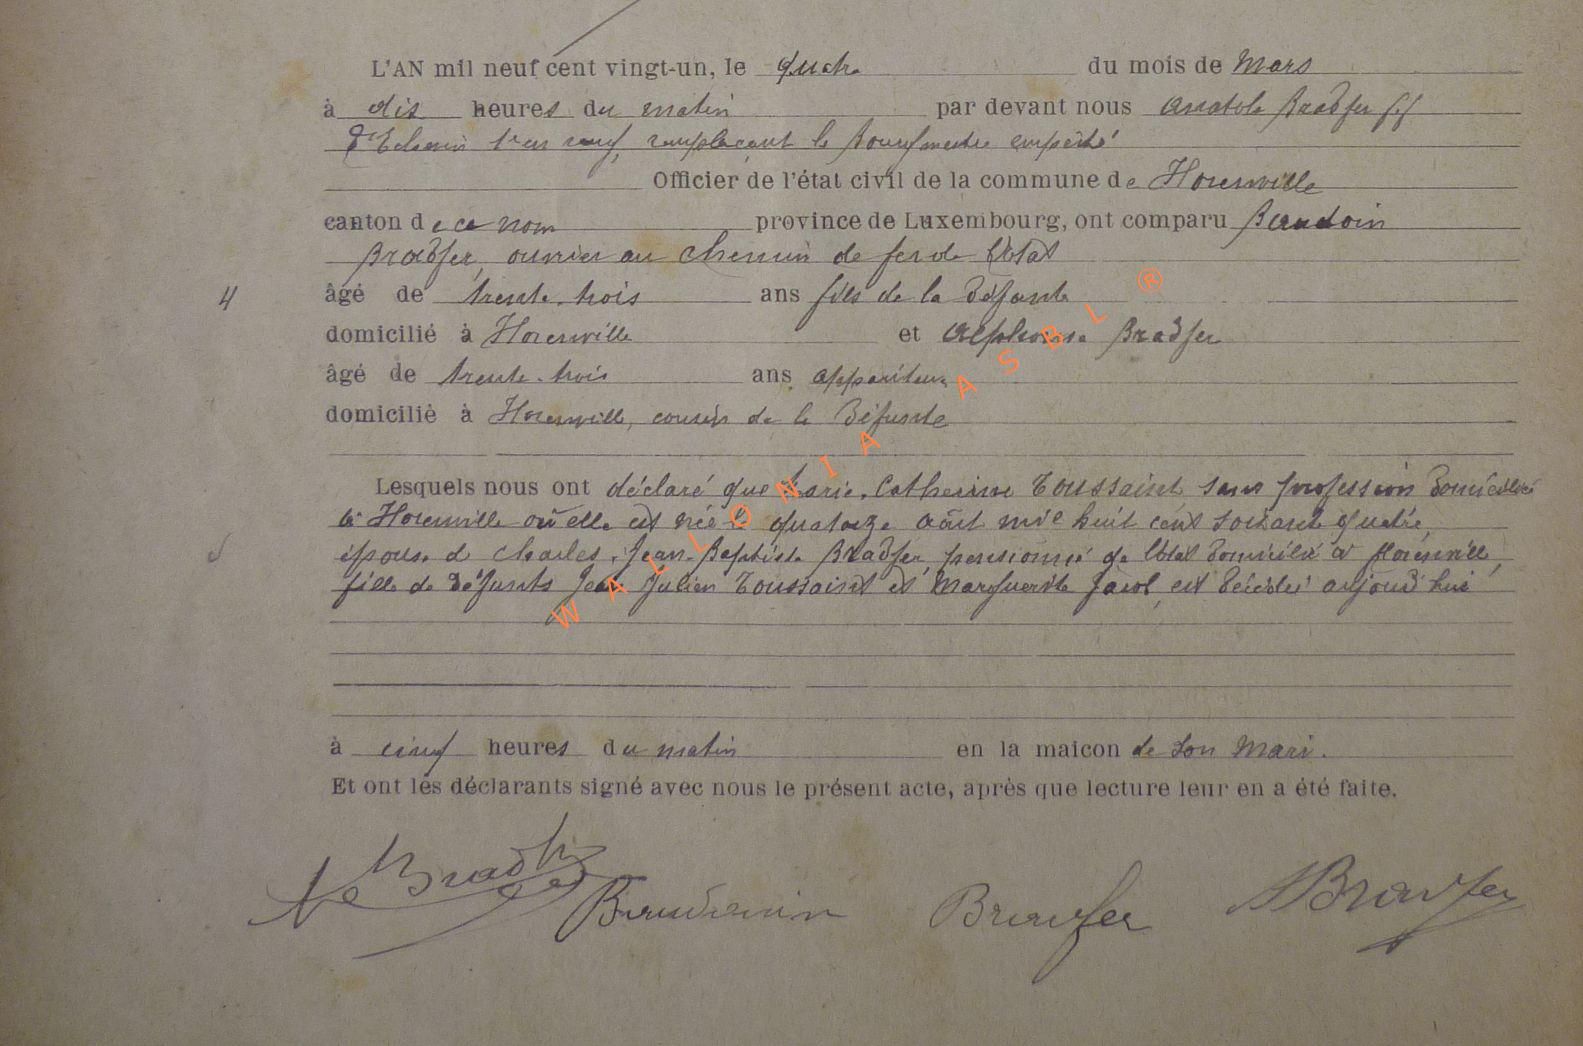 L'AN mil neuf cent vingt-un, le quatre du mois de Mars
à dix heures du matin par devant nous Anatole Bradfer ff
d'Echevin remplaçant le Bourgmestre empêché
Officier de l'état civil de la commune de Florenville
canton de ce nom province de Luxembourg, ont comparu Baudoin
Bradfer, ouvrier au chemin de fer de l'Etat
4
âgé de trente-trois ans fils de la défunte
domicilié à Florenville et Alphonse Bradfer
âgé de trente-trois ans appariteur
domicilié à Florenville, cousin de la défunte
Lesquels nous ont déclaré que Marie-Catherine Toussaint sans profession domiciliée
à Florenville où elle est née le quatorze août mil huit cent soixante quatre,
épouse de Charles-Jean-Baptiste Bradfer, pensionné de l'état domicilié à Florenville,
fille de défunts Jean Julien Toussaint et Marguerite Jacob, est décédée aujourd'hui
à cinq heures du matin en la maicon de son Mari.
Et ont les déclarants signé avec nous le présent acte, après que lecture leur en a été faite.
Bradfer Baudouin Bradfer ABradfer
WALLONIA ASBL ®